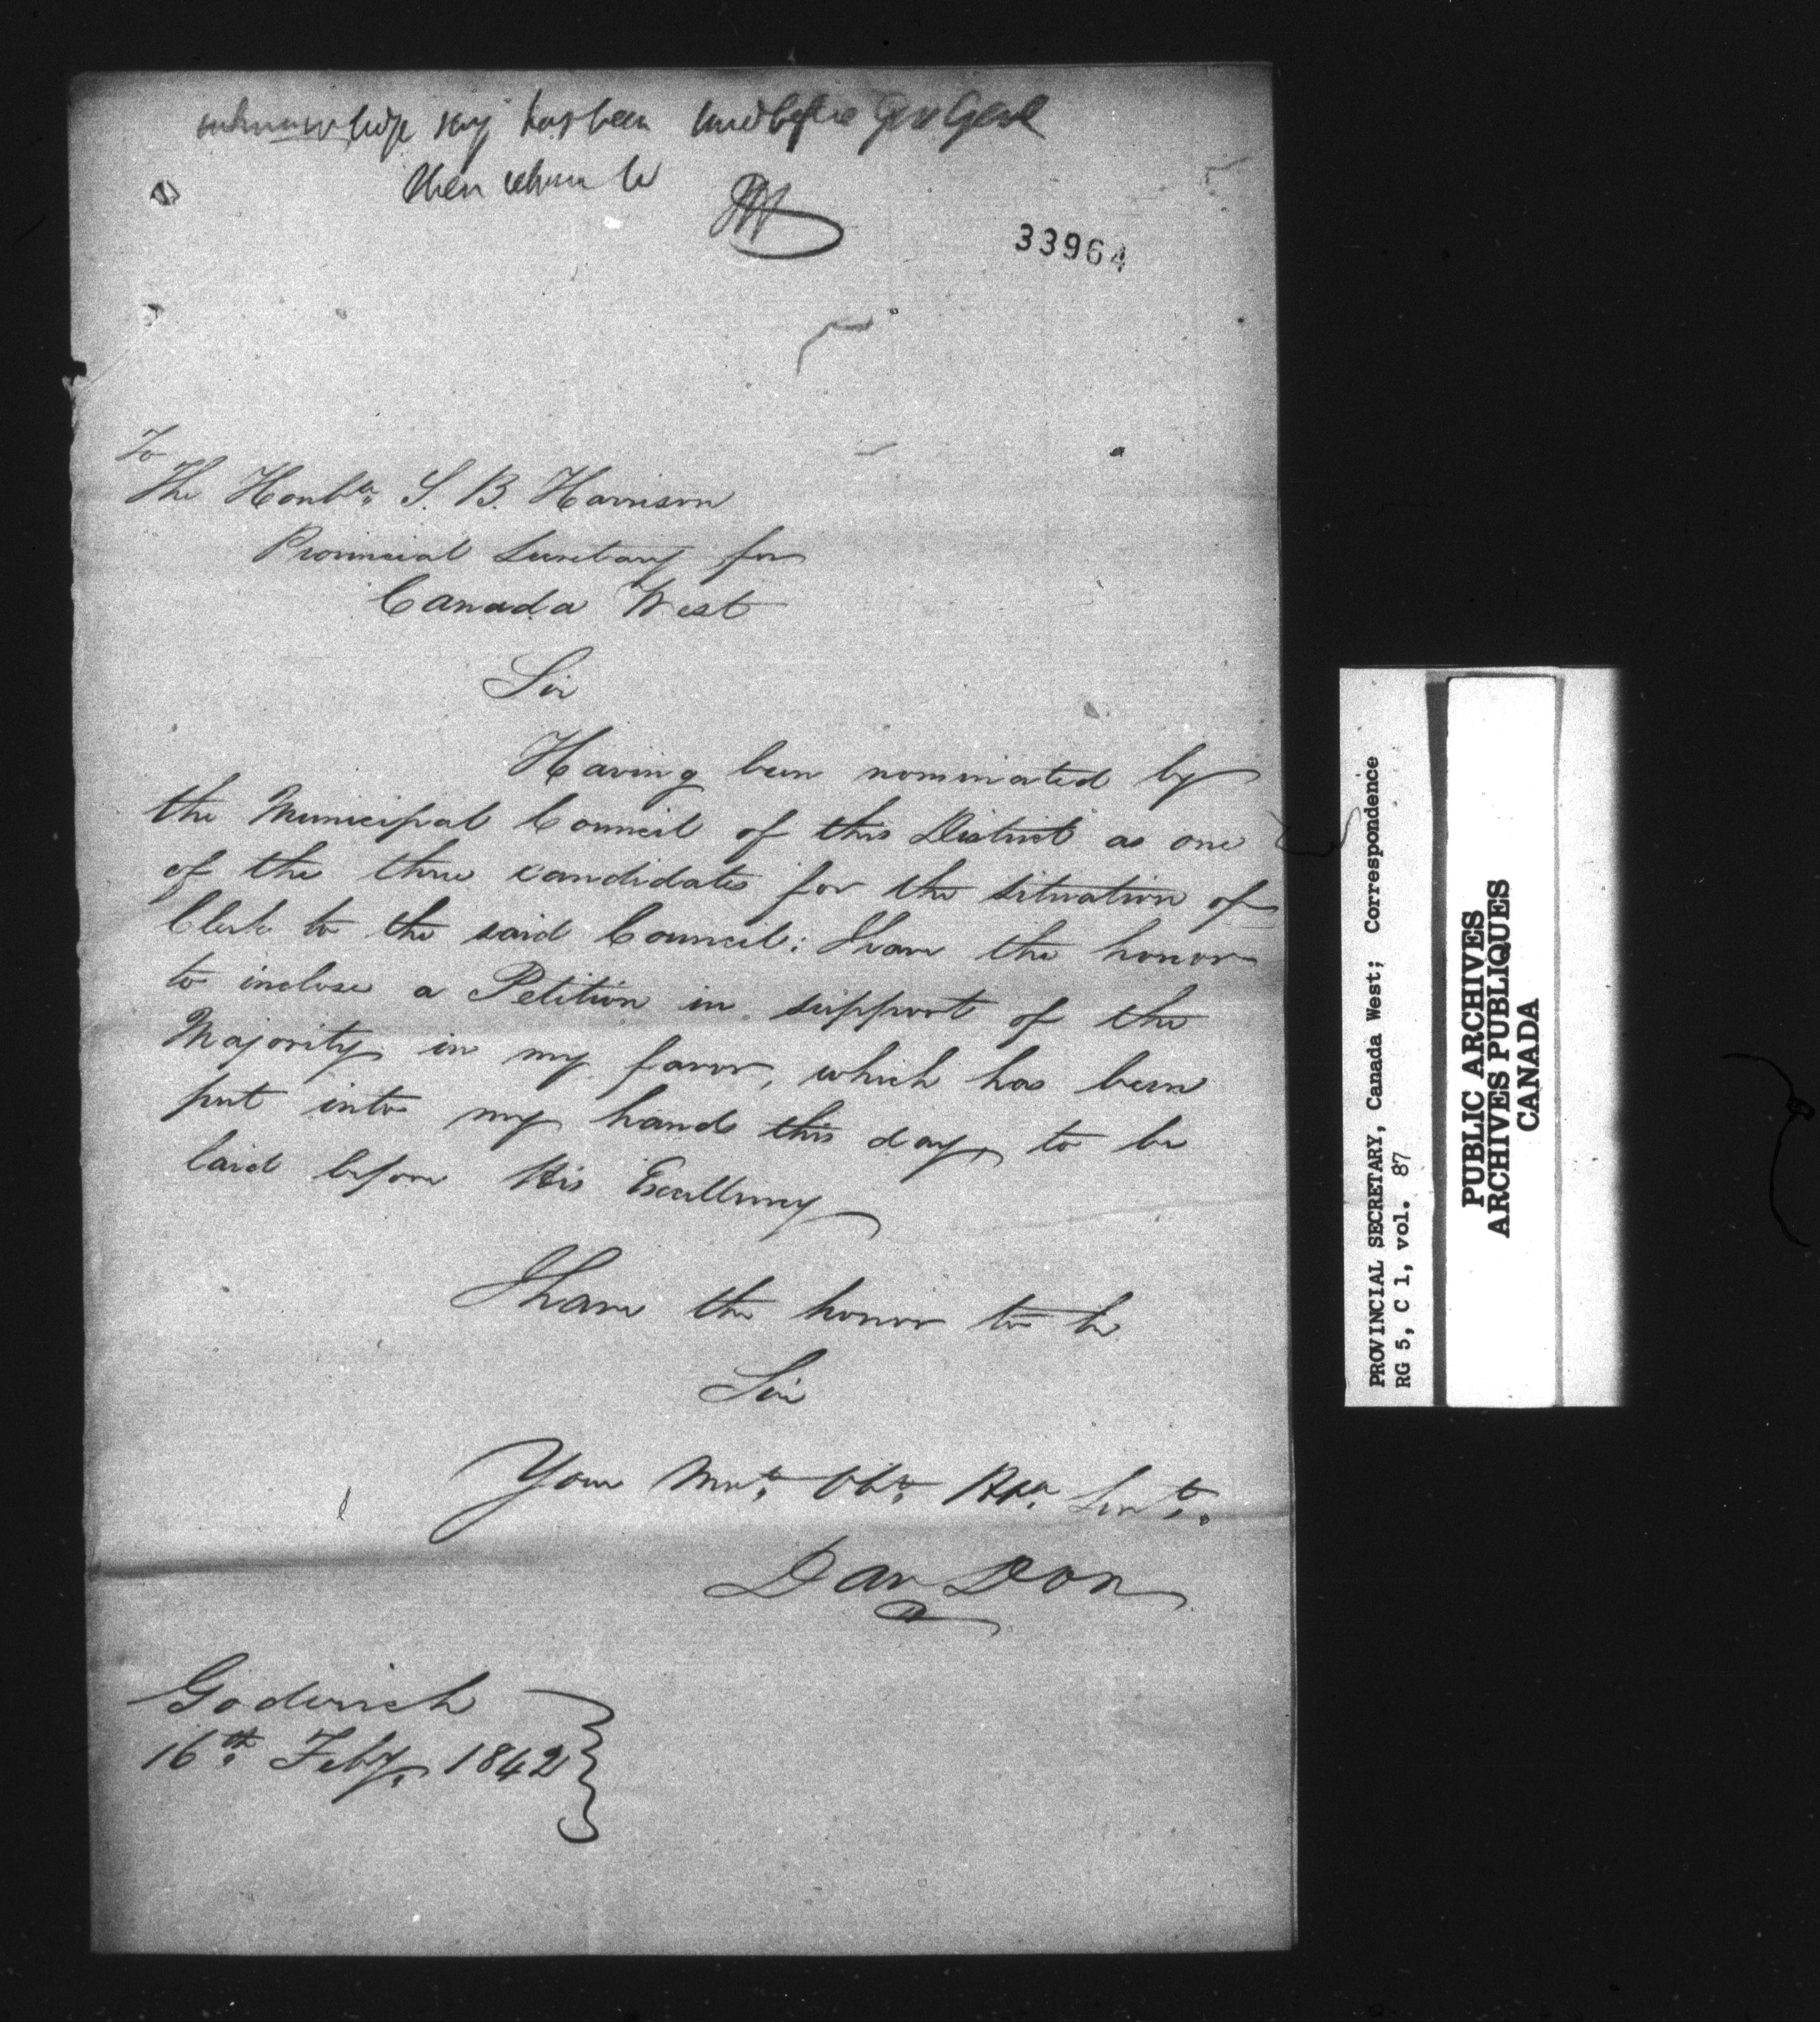 acknowledge say has been laid before Gov Genl
then return to
33964
To
The Honble. S. B. Harrison
Provincial Secretary for
Canada West
Sir
Having been nominated by
the Municipal Council of this District as one
of the three candidates for the situation of
Clerk to the said Council: I have the honor
to inclose a Petition in support of the
Majority in my favor, which has been
put into my hands this day, to be
laid before His Excellency
I have the honor to be
Sir
Your Mot. Obt. Servt.
Dan Don
Goderich
16th. Feby. 1842
PROVINCIAL SECRETARY, Canada West; Correspondence
RG 5, C 1, vol. 87
PUBLIC ARCHIVES
ARCHIVES PUBLIQUES
CANADA